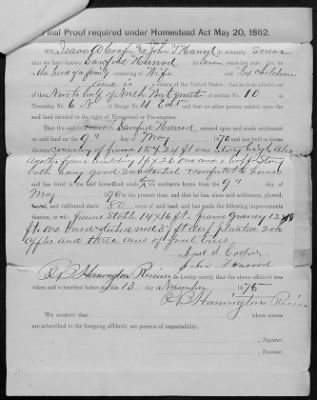 Final Proof required under Homestead Act May 20, 1862.
We, Isaac D Cooper & John T Harrod do solemnly swear
that we have known Sanford Harrod for seven years last past; that he is
the head of a family consisting of Wife and Six children
and is a citizen of the United States; that he is an inhabitant of the
North half of North East quarter of section No. 10 in
Township No. 6 N of Range No. 4 East and that no other person resided upon the
said land entitled to the right of Homestead or Pre-emption.
That the said Sanford Harrod entered upon and made settlement
on said land on the 9th day of May 1870 and has built a house
thereon consisting of frame 18 x 24 ft one story high Also
another frame building 16 x 26 one and a half Story
both very good substantial comfortable houses
and has lived in the said house and made it his exclusive home from the 9th of
May 1870 to the present time, and that he has, since said settlement, plowed,
and cultivated about 50 acres of said land, and has made the following improvements
thereon, to wit: frame Stable 14 x 16 ft frame granary 12 x
ft. one
Apples and three acres of forest trees
Isaac D. Cooper
John T Harrod
I, Receiver do hereby certify that the above affidavit was
taken and subscribed before me this 13 day of November 1875
Receiver
We certify that whose names
are subscribed to the foregoing affidavit, are persons of respectability.
, Register.
, Receiver.